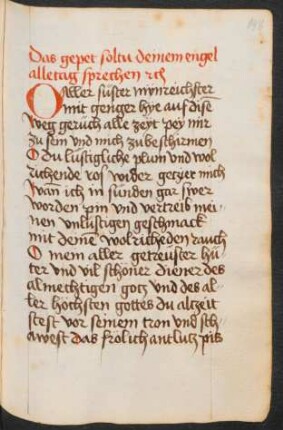 Das gepet soltu deinem engel
alleczig sprechen ꝛc
O Aller süster mynreichster
mit genger hye auf diſē
weg gerüch alle zeyt pey mir
zu sein und mich zu beschirmen
O du lustigliche plum und wol
richende ros wider
wan ich in sünden gar swer
worden pin und vertreib mei-
nen unlustigen geschmack
mit deinē wolricheden rauch
O mein aller getreüster hü
ter und vil schöner diener des
almechtigen gotz und des al-
ler höchsten gottes du alzeit
stest vor seinem tron und sch-
awest das frölich antlutz pis